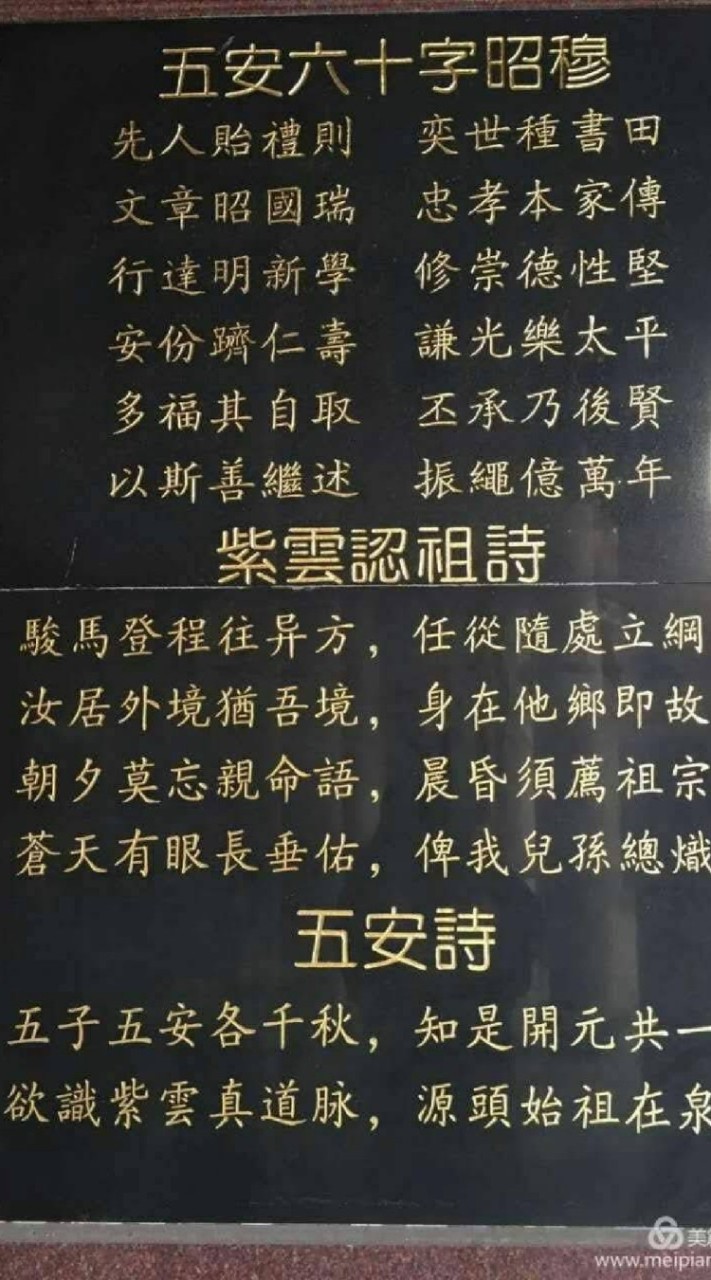 五安六十字昭穆
先人貽禮則　奕世種書田
文章昭國瑞　忠孝本家傳
行達明新學　修崇德性堅
安份躋仁壽　謙光樂太平
多福其自取　丕承乃後賢
以斯善繼述　振繩億萬年
紫雲認祖詩
駿馬登程往异方，任從隨處立綱
汝居外境猶吾境，身在他鄉即故
朝夕莫忘親命語，晨昏須薦祖宗
蒼天有眼長垂佑，俾我兒孫總熾
五安詩
五子五安各千秋，知是開元共一
欲識紫雲真道脉，源頭始祖在泉
美
www.meipian